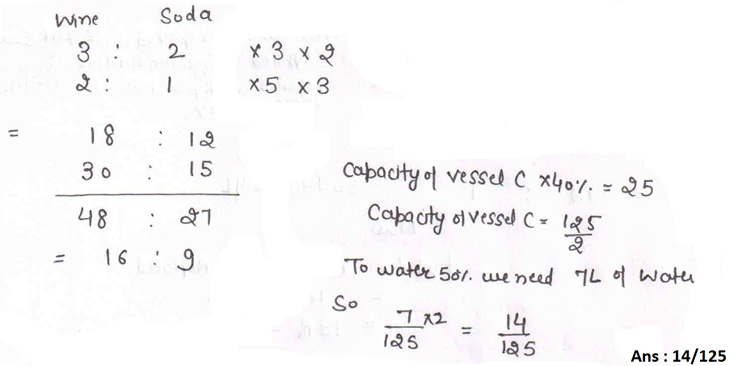 Wine Soda
3 : 2 × 3 × 2
2 : 1 ×5 ×3
= 18 : 12
30 : 15
48 : 27
= 16 : 9
Capacity of vessel C ×40% = 25
Capacity of vessel C = 125/2
To water 50% we need 7L of water
So 7×2/125 = 14/125
Ans : 14/125